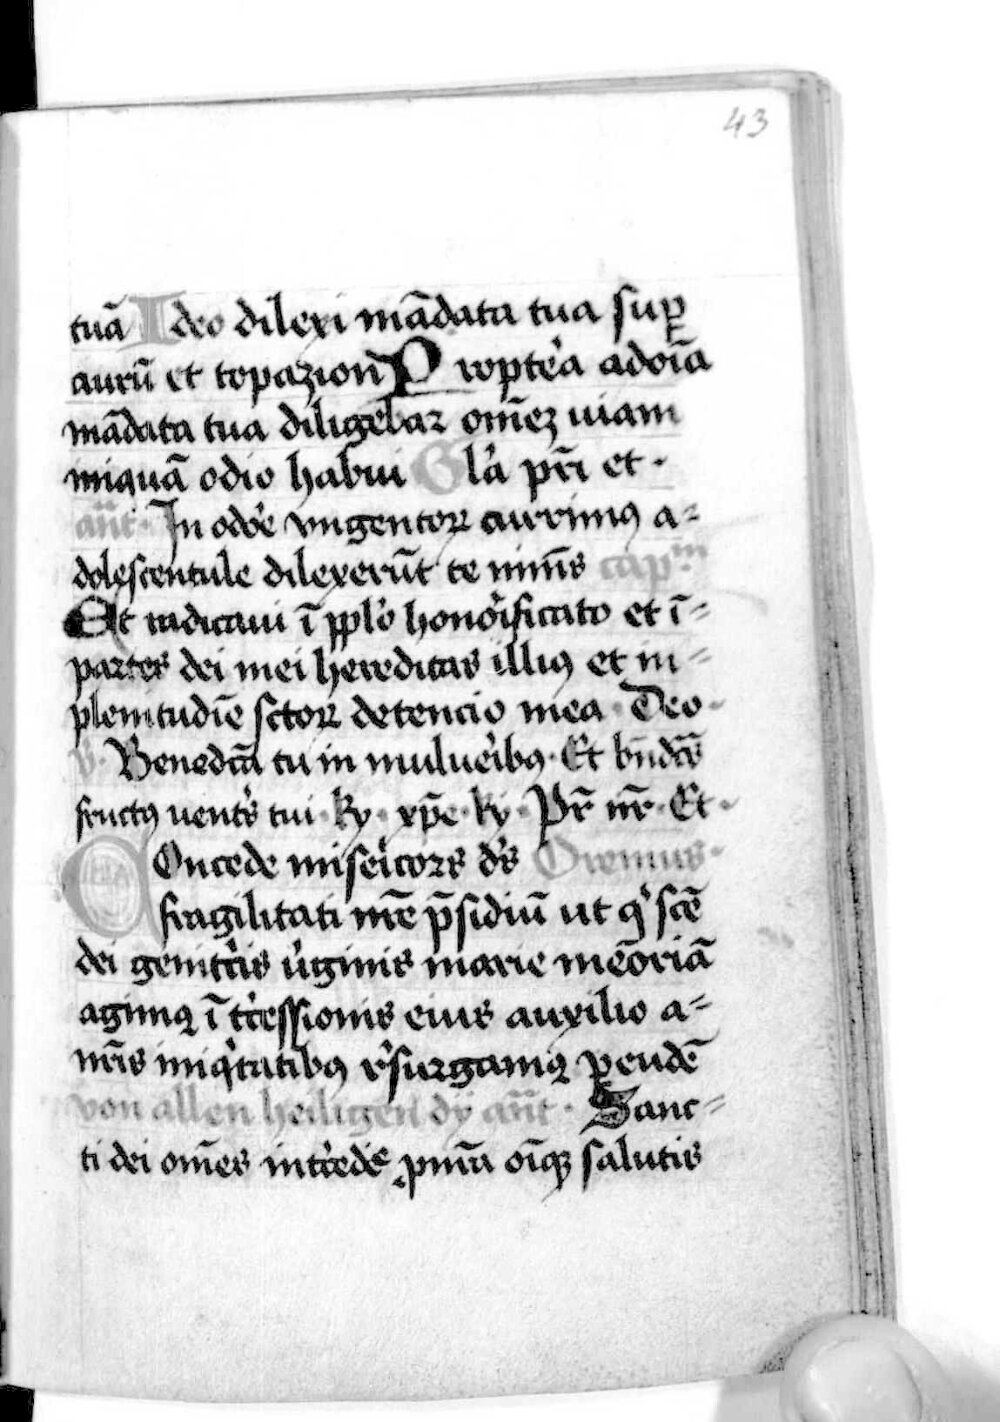 43
tuā Ideo dilexi mādata tua suꝑ
aurū et topazion Propte'a ad oīa
mādata tua diligebar om̄eꝫ uiam
iniquā odio habui Gl'a pr̄i et ·
an̄t · In odo'e vngentoꝝ currimꝰ a-
dolescentule dilexerūt te nimis cap^m
Et radicaui ī ppl'o hono'ificato et ī-
partes dei mei hereditas illiꝰ et in-
plenitudīe sctoꝝ detencio mea · Deo ·
v. Benedc̄ta tu in mulie'ibꝰ · Et bn̄dc̄ꝰ
fructꝰ vent's tui · ky · xp̄e · ky · Pr̄ nr̄ · Et ·
COncede mise'icors d's Oremus ·
fragilitati nr̄e p̄sidiū ut q' sc̄e
dei genit'cis v'ginis marie mēoriā
agimꝰ īt'cessionis eius auxilio a-
nr̄is iniq'tatibꝰ r'surgamꝰ ꝑ eundē
von allen heiligen dÿ an̄t · Sanc-
ti dei om̄es int'cede' ꝓ nr̄a oīqꝫ salutis